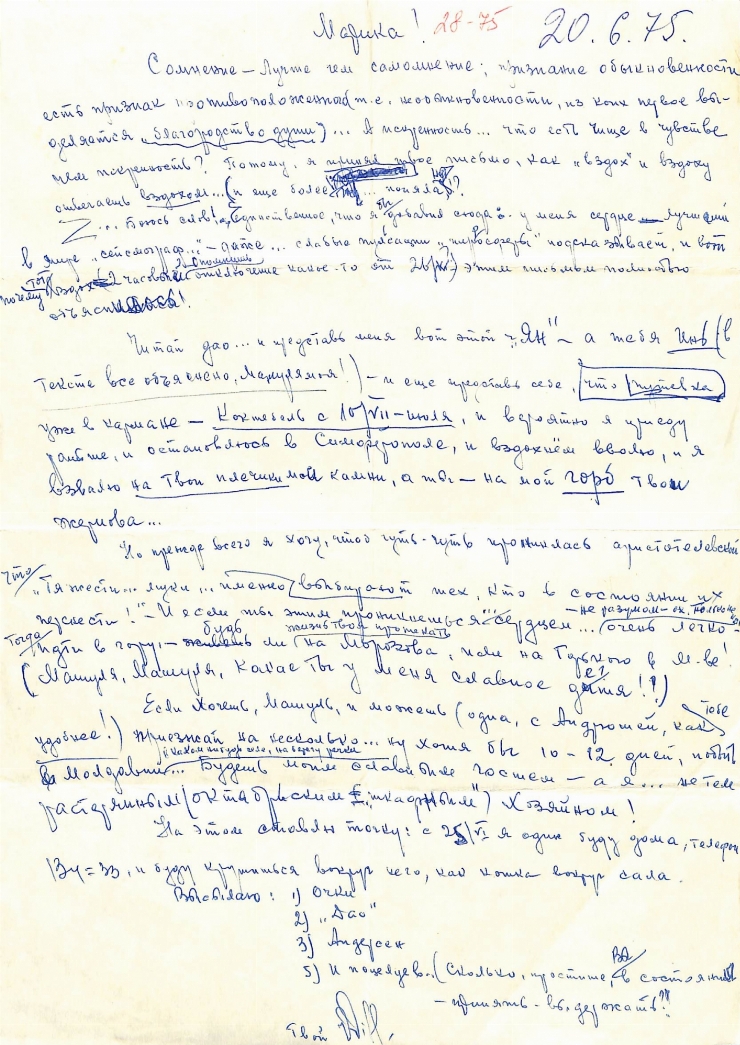 Марика! 28-75 20.6.75.
Сомнение – Лучше чем самомнение; признание обыкновенности
есть признак противоположенной (т.е. необыкновенности, из коих первое вы-
деляется „благородство души“)... А искренность... что есть чище в чувстве
чем искренность? Потому, я принял твое письмо, как „вздох“ и вздоху
отвечаешь вздохом... (и еще более ... поняла?
... Боюсь слов! Единственное, что я бы добавил сюда: у меня сердце – лучший
в мире „сейсмограф“ – даже... слабые пульсации подсказывает, и вот
почему 2 часовый отключение какое-то от 26 этим письмом полностью
объяснилось!
Читай дао... и представь меня вот этой „ЯН“ – а тебя Инь (в
тексте все объяснено, Мануля моя!) – и еще представь себе, что путевка
уже в кармане – Коктебель с 10/VII – июля, и вероятно я приеду
раньше, и остановлюсь в Симферополе, и вздохнём вволю, и я
взвалю на Твои плечики мои камни, а ты – на мой горб твои
жернова...
Но прежде всего я хочу, чтоб чуть-чуть прониклась аристотелевской
что „Тяжести... муки... именно выбирают тех, кто в состоянии их
перенести!“ – И если ты этим проникнешься... сердцем... – не разумом – очень легко
Тогда идти в гору, – будь ли жизнь твоя протекать на Морозова, или на Горького в М-ве!
(Машуля, Машуля, какая Ты у меня славное дитя!!)
Если Хочешь, Машуль, и можешь (одна, с Андрюшей, как Тебе
удобнее!) приезжай на несколько... ну хотя бы 10–12 дней, побыть
в Молдавии... Будешь моим славным гостем – а я... не тем
растерянным (октябрьским) Хозяйном!
На этом ставлю точку: с 25/VI я один буду дома, телефон
и буду крутиться вокруг него, как кошка вокруг сала.
Высылаю: 1) Очки
2) „Дао“
3) Андерсен
5) И поцелуев. (Сколько, простите, ВЫ в состоянии
– принять – выдержать?!
Твой Will.